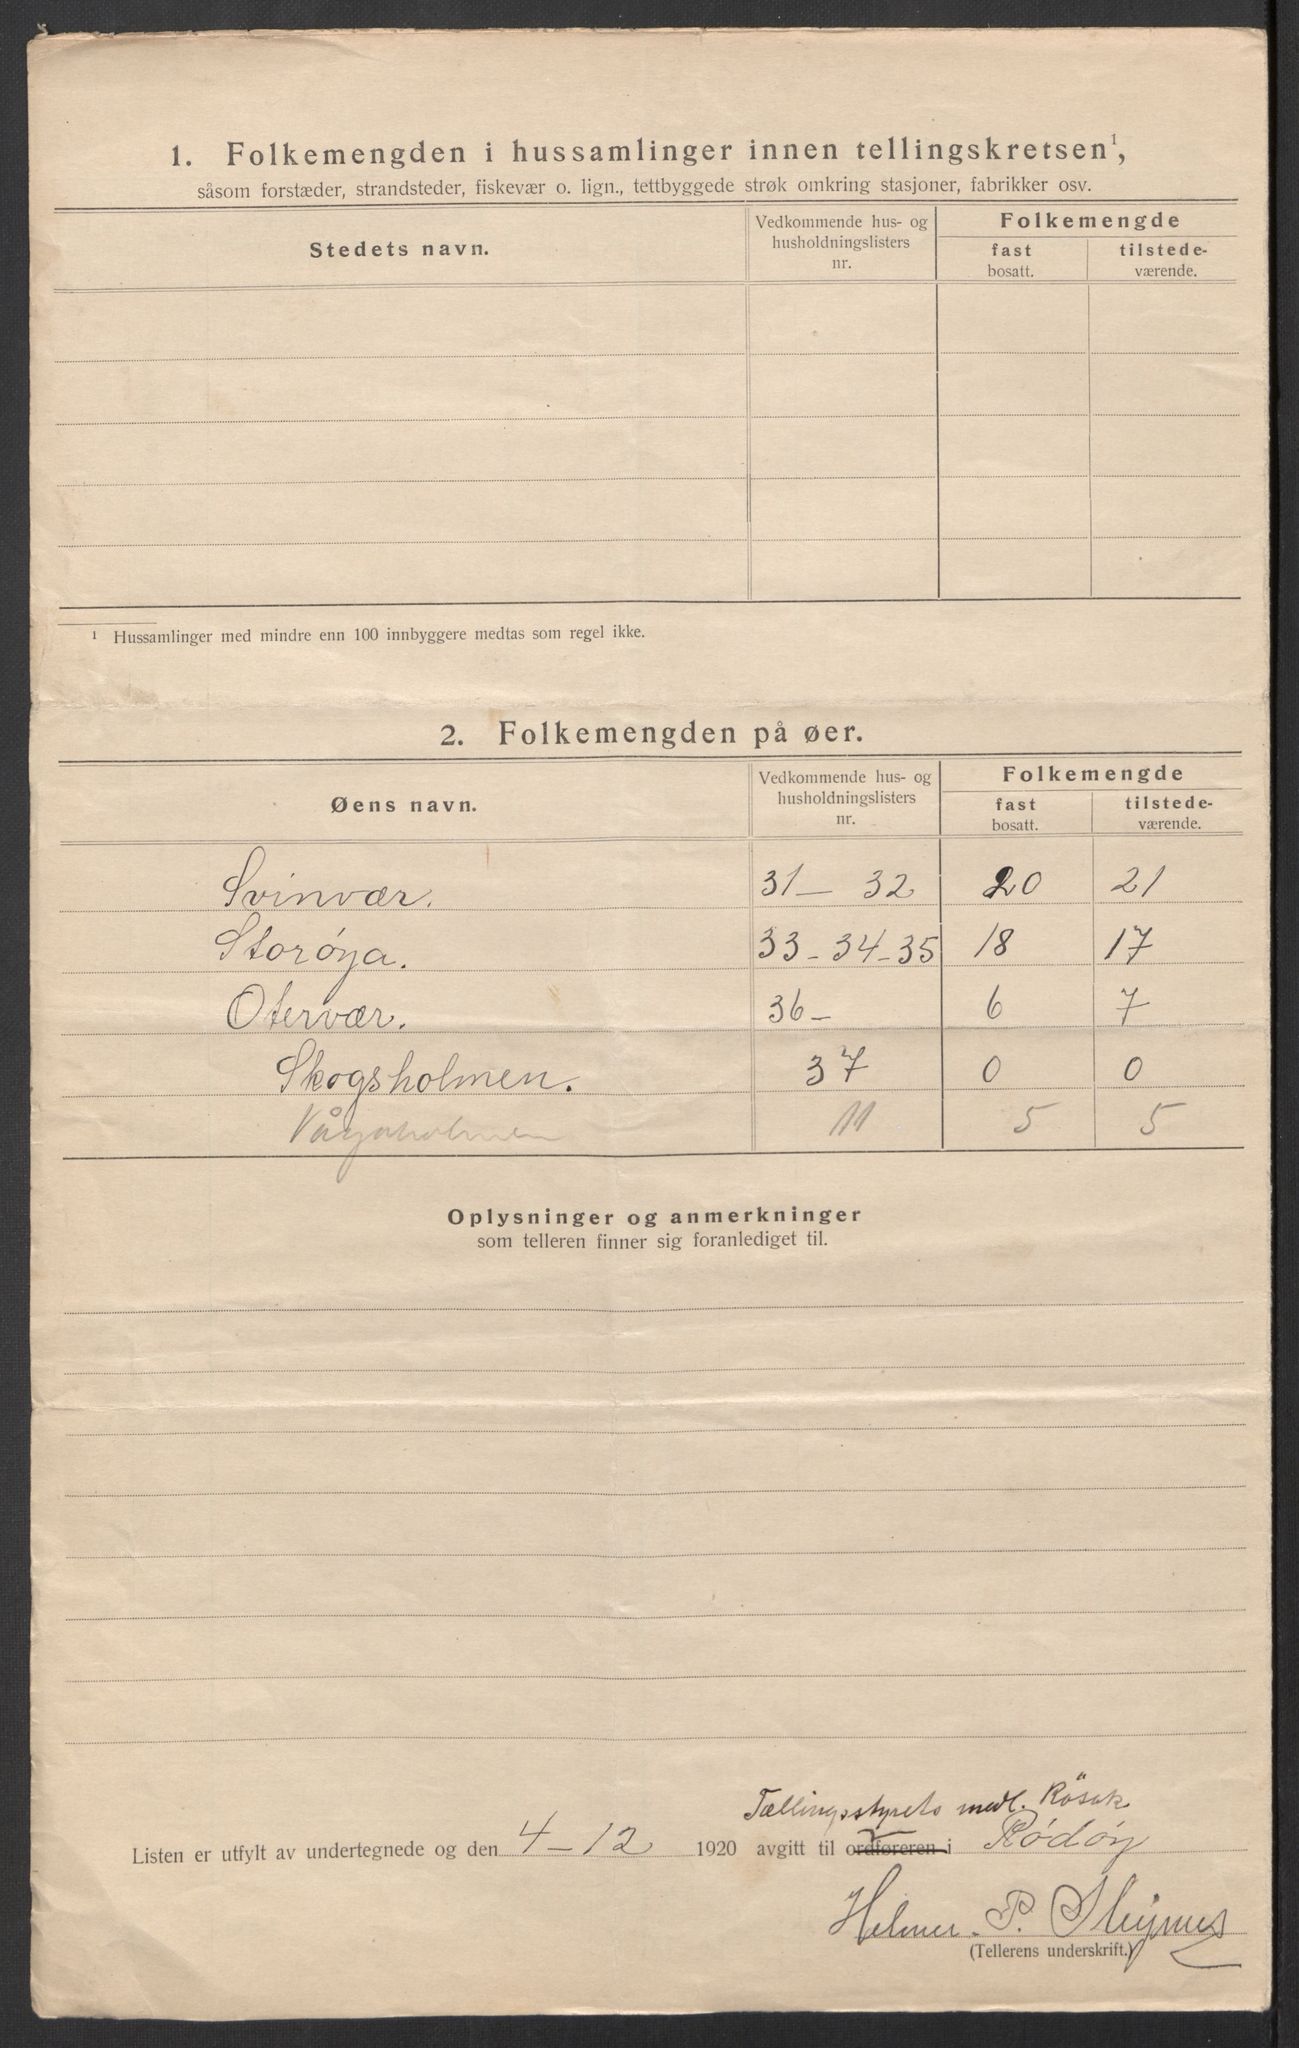 1. Folkemengden i hussamlinger innen tellingskretsen¹,
såsom forstæder, strandsteder, fiskevær o. lign., tettbyggede strøk omkring stasjoner, fabrikker osv.
Stedets navn.
Vedkommende hus- og husholdningslisters nr.
Folkemengde
fast bosatt.
tilstede-værende.
¹ Hussamlinger med mindre enn 100 innbyggere medtas som regel ikke.
2. Folkemengden på øer.
Øens navn.
Vedkommende hus- og husholdningslisters nr.
Folkemengde
fast bosatt.
tilstede-værende.
Svinvær. 31 - 32 20 21
Storøya. 33 - 34 - 35 18 17
Otervær. 36 - 6 7
Skogsholmen. 37 0 0
Vågaholmen 11 5 5
Oplysninger og anmerkninger
som telleren finner sig foranlediget til.
Tællingsstyrets medl. Røsok
Listen er utfylt av undertegnede og den 4-12 1920 avgitt til ordføreren i Rødøy
Helmer P.
(Tellerens underskrift.)